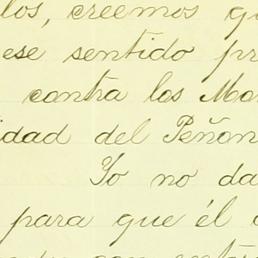 los, creemos qu
ese sentido pr
contra los Mo
idad del Peñon
Yo no da
para que él